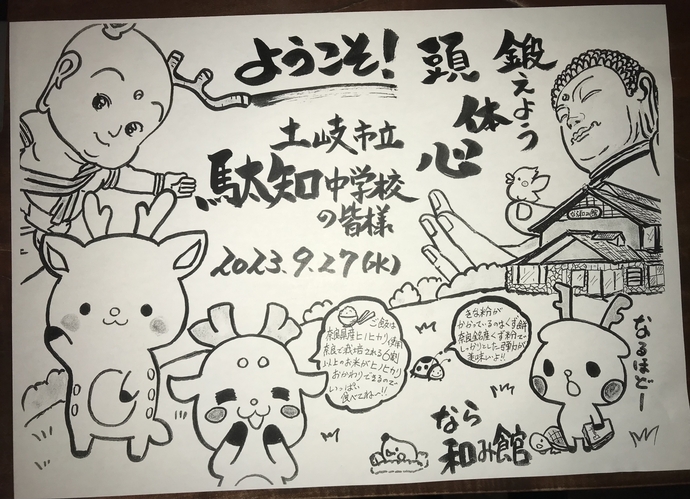 ようこそ!
鍛えよう
頭
体
心
土岐市立
駄知中学校
の皆様
2023.9.27(水)
ご飯は
奈良県産ヒノヒカリ
奈良で栽培される6割
以上のお米がヒノヒカリ
おかわりできるので
いっぱい
食べてねー!!
きな粉が
かかっているのはくず餅
奈良名産くず粉で
しっかりとした弾力が
美味いよ!!
なるほどー
なら
和み館